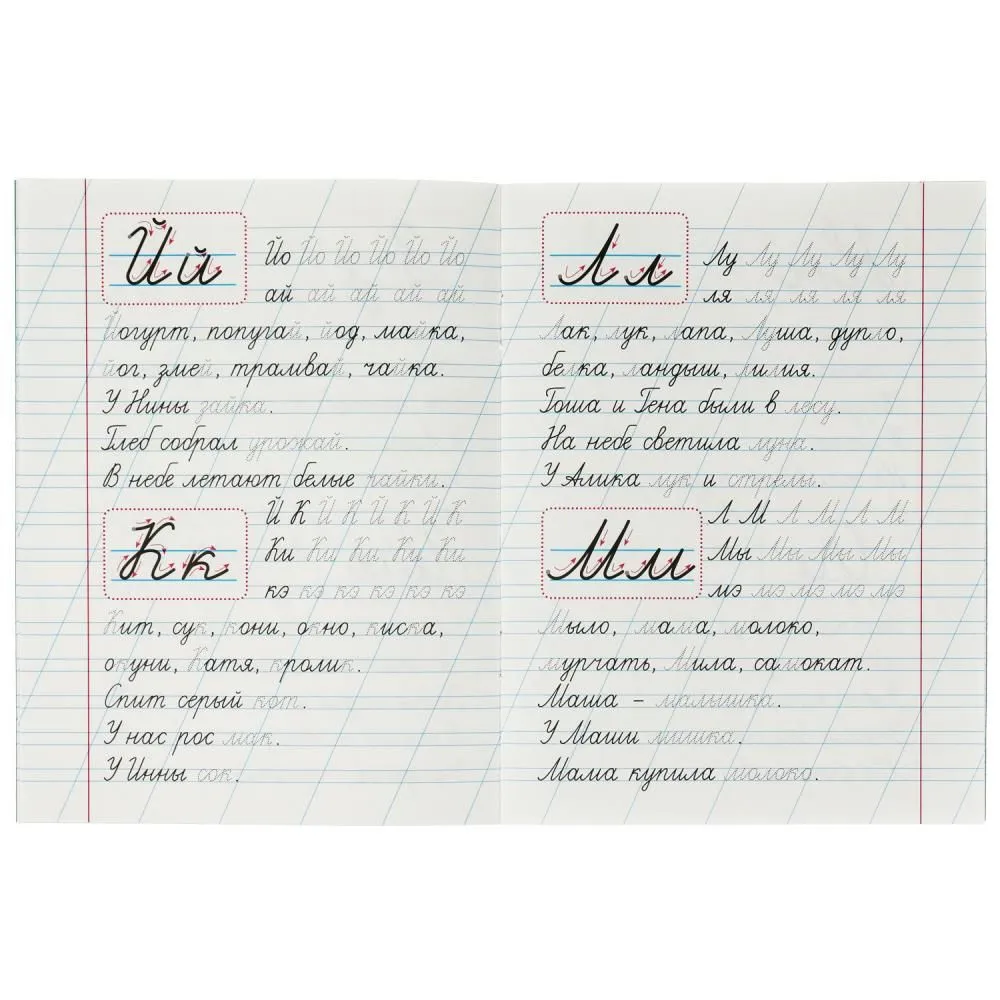 Й й
Йо Йо Йо Йо Йо Йо
ай ай ай ай ай
Йогурт, попугай, йод, майка,
йог, змей, трамвай, чайка.
У Нины зайка.
Глеб собрал урожай.
В небе летают белые чайки.
К к
Й К Й К Й К Й К
Ки Ки Ки Ки Ки
кэ кэ кэ кэ кэ кэ
Кит, сук, кони, окно, киска,
окуни, Катя, кролик.
Спит серый кот.
У нас рос мак.
У Инны сок.
Л л
Лу Лу Лу Лу Лу
ля ля ля ля ля
Лак, лук, лапа, Луша, дупло,
белка, ландыш, лилия.
Гоша и Гена были в лесу.
На небе светила луна.
У Алика лук и стрелы.
М м
Л М Л М Л М
Мы Мы Мы Мы
мэ мэ мэ мэ мэ
Мыло, мама, молоко,
мурчать, Мила, самокат.
Маша – малышка.
У Маши мишка.
Мама купила молоко.